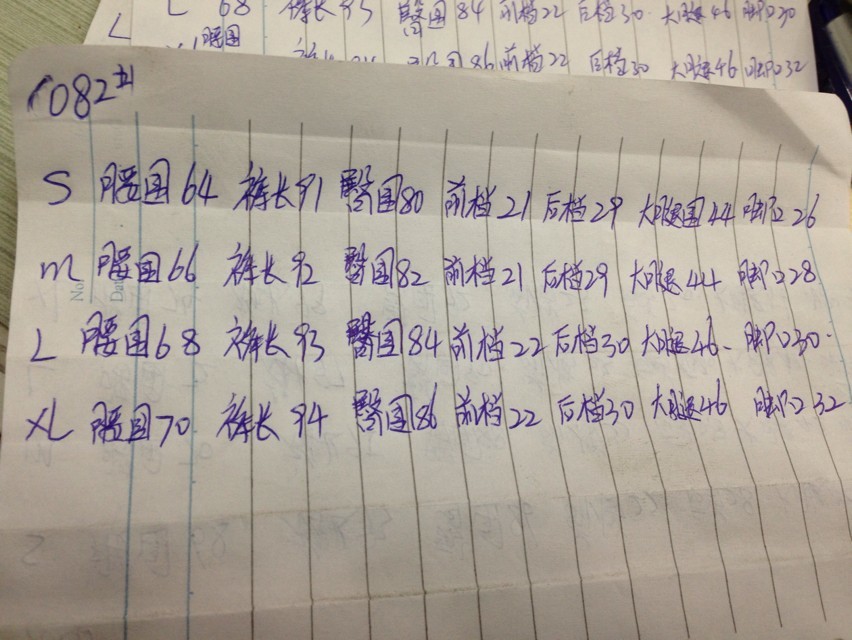 L 68 裤长93 臀围84 前档22 后档30 大腿46 脚口30
腰围
86 前档22 后档30 大腿46 脚口32
1082#
S 腰围64 裤长91 臀围80 前档21 后档29 大腿围44 脚口26
m 腰围66 裤长92 臀围82 前档21 后档29 大腿44 脚口28
L 腰围68 裤长93 臀围84 前档22 后档30 大腿46 脚口30
XL 腰围70 裤长94 臀围86 前档22 后档30 大腿46 脚口32
No.
Date